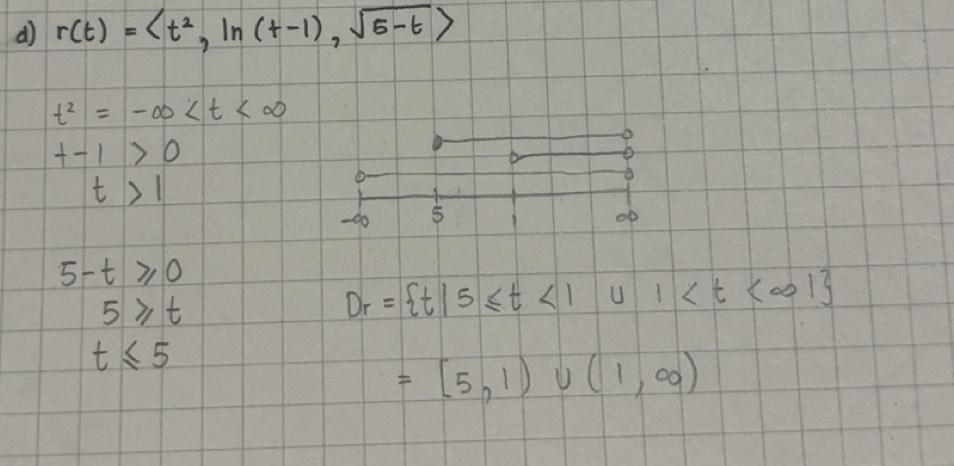 d) r(t) = ⟨t², ln (t-1), √5-t⟩
t² = -∞ < t < ∞
t-1 > 0
t > 1
-∞ 5 1 ∞
5-t ⩾ 0
5 ⩾ t
t ⩽ 5
Dr = {t | 5 ⩽ t < 1 ∪ 1 < t < ∞ 1}
= [5, 1) ∪ (1, ∞)